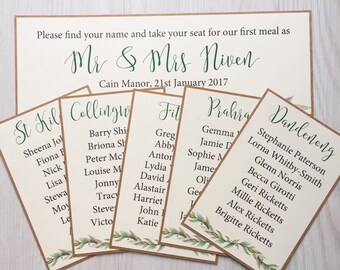 Please find your name and take your seat for our first meal as
Mr & Mrs Niven
Cain Manor, 21st January 2017
St Kil
Sheena Jo
Fiona
Nick
Lisa
Step
Ma
Collingw
Barry Shi
Briona Sh
Peter Mc
Louise M
Jonny
Tracy
Steve
Victo
Fit
Greg
Abb
Antho
Lydia
David
Alastair
Harriet
John
Katie
Prahra
Gemma
Jamie
Sophie
James
David
Johnny
Alex
Dandenong
Stephanie Paterson
Lorna Whitby-Smith
Glenn Norris
Becca Ginotti
Geri Ricketts
Millie Ricketts
Alex Ricketts
Brigitte Ricketts